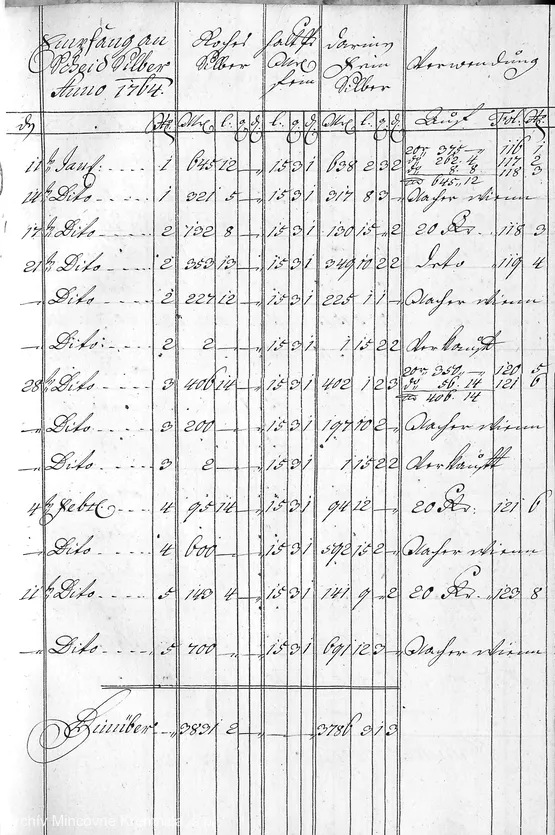 Empfang an Scheid Silber Anno 1764. Roches Silber haltet Mrk fein dariny Fein Silber Verwendung
dy No. Mrk l. q. d. l. q. d. Mrk l. q. d. Auf Fol.
11 Janr: 1 645 12 — „ 15 3 1 638 2 3 2 20r 375 — „ 116 1
do 262 „ 4 117 2
do 8 „ 8 118 3
645 „ 12
14 Dito 1 321 5 — „ 15 3 1 317 8 3 „ Nacher Wienn
17 Dito 2 132 8 — „ 15 3 1 130 15 „ 2 20 Kr. 118 3
21 Dito 2 353 13 — „ 15 3 1 349 10 2 2 Deto 119 4
„ Dito 2 227 12 — „ 15 3 1 225 1 1 „ Nacher Wienn
„ Dito: 2 2 — „ 15 3 1 1 15 2 2 Verkaufft
28 Dito 3 406 14 — „ 15 3 1 402 1 2 3 20r 350 „ 120 5
do 56 „ 14 121 6
406 „ 14
„ Dito 3 200 — „ 15 3 1 197 10 2 „ Nacher Wienn
„ Dito 3 2 — „ 15 3 1 1 15 2 2 Verkaufft
4 Febr 4 95 14 — „ 15 3 1 94 12 — „ 20 Kr: 121 6
„ Dito 4 600 — „ 15 3 1 592 15 2 „ Nacher Wienn
11 Dito 5 143 4 — „ 15 3 1 141 9 „ 2 20 Kr. 123 8
„ Dito 5 700 „ „ 15 3 1 691 12 3 „ Nacher Wienn
Hinüber „ 3831 2 — „ 3786 3 1 3
Archív Mincovne Kremnica